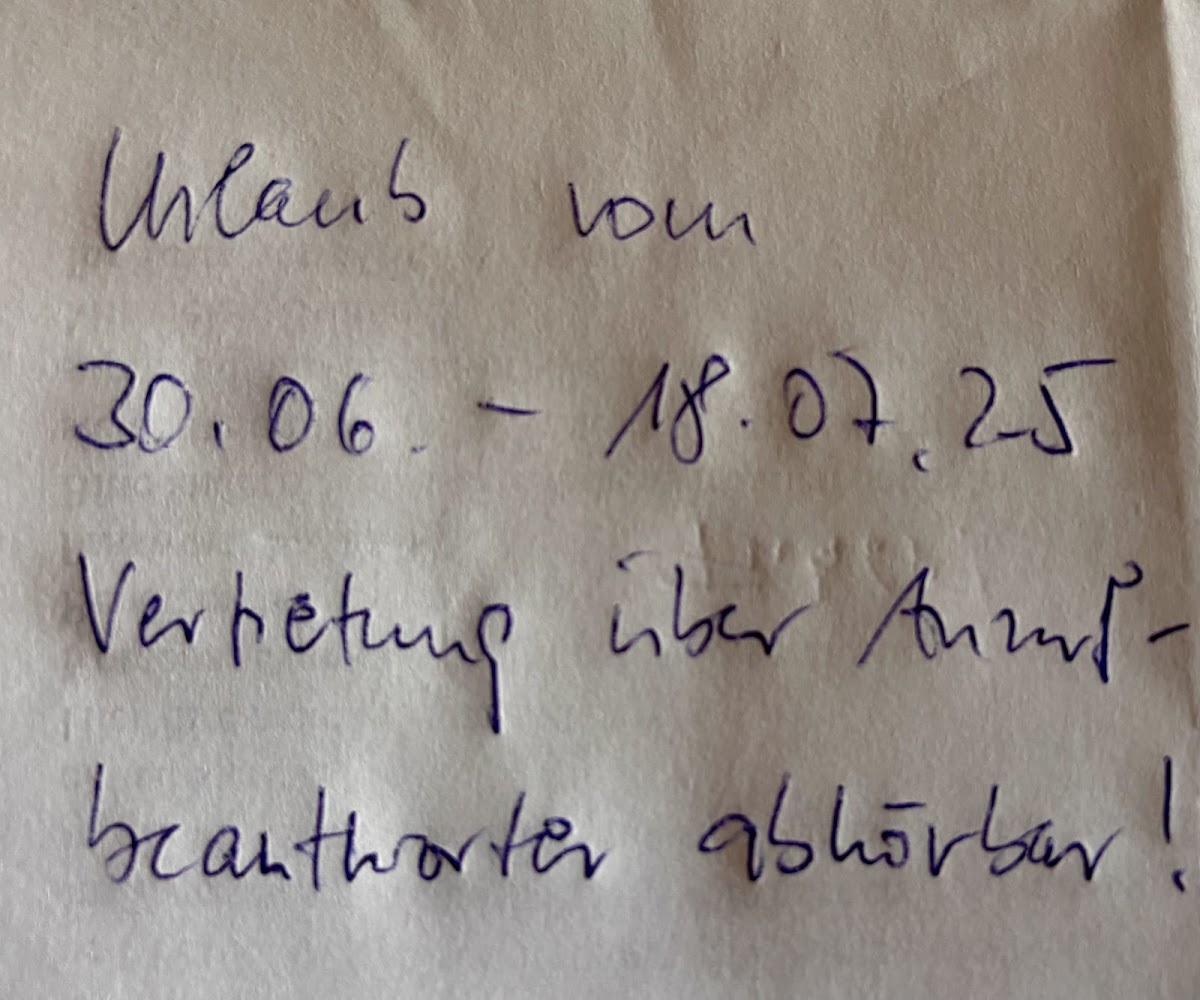 Urlaub vom
30.06. - 18.07.25
Vertretung über Anruf-
beantworter abhörbar!